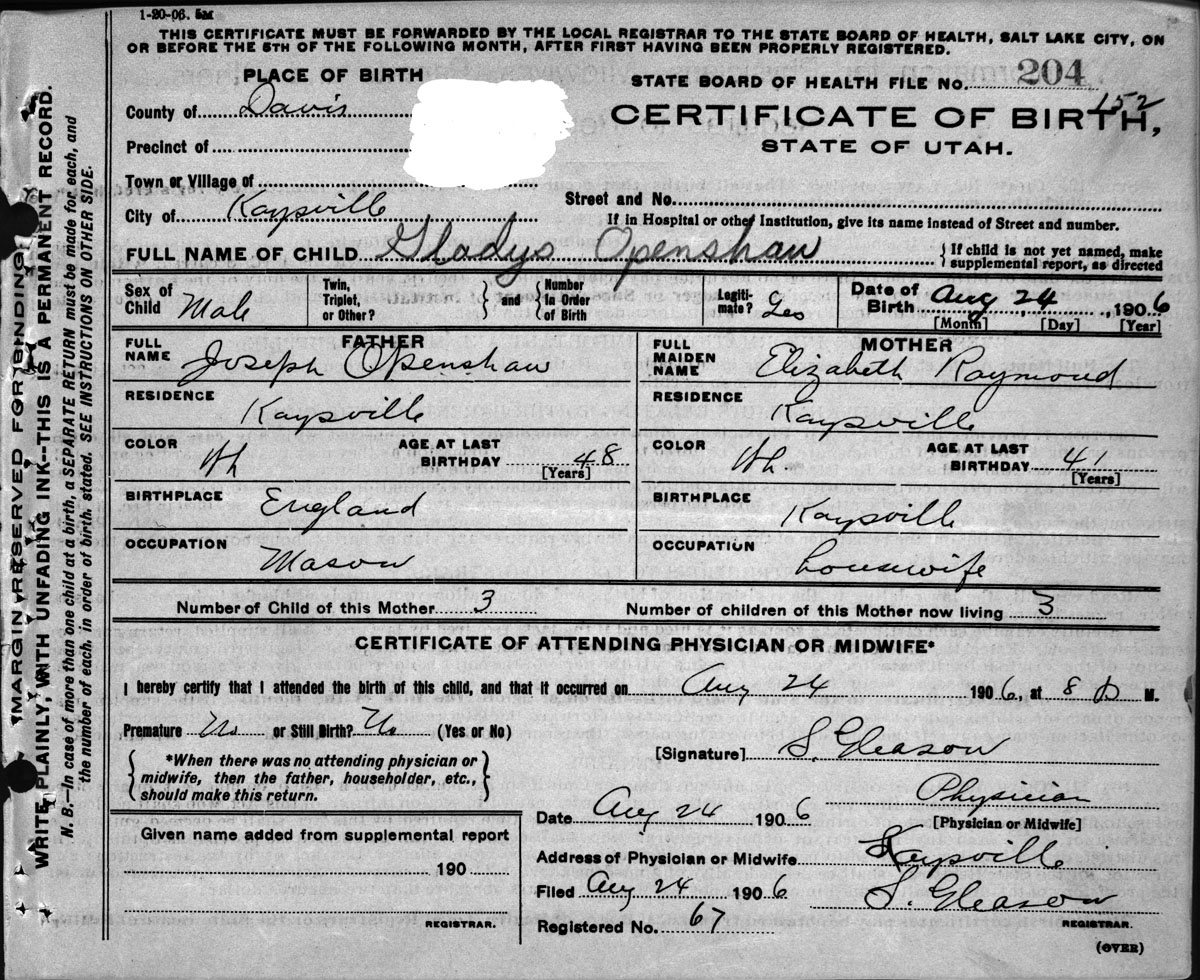 1-20-06. 5M
THIS CERTIFICATE MUST BE FORWARDED BY THE LOCAL REGISTRAR TO THE STATE BOARD OF HEALTH, SALT LAKE CITY, ON
OR BEFORE THE 5TH OF THE FOLLOWING MONTH, AFTER FIRST HAVING BEEN PROPERLY REGISTERED.
PLACE OF BIRTH
STATE BOARD OF HEALTH FILE NO. 204
152
County of Davis
CERTIFICATE OF BIRTH,
STATE OF UTAH.
Precinct of
Town or Village of
Street and No.
City of Kaysville
If in Hospital or other Institution, give its name instead of Street and number.
FULL NAME OF CHILD Gladys Openshaw { If child is not yet named, make supplemental report, as directed
Sex of Child Male
Twin, Triplet, or Other? } and { Number In Order of Birth
Legitimate? Yes
Date of Birth Aug 24, 1906
[Month] [Day] [Year]
FATHER
FULL NAME Joseph Openshaw
RESIDENCE Kaysville
COLOR Wh AGE AT LAST BIRTHDAY 48
[Years]
BIRTHPLACE England
OCCUPATION Mason
MOTHER
FULL MAIDEN NAME Elizabeth Raymond
RESIDENCE Kaysville
COLOR Wh. AGE AT LAST BIRTHDAY 41
[Years]
BIRTHPLACE Kaysville
OCCUPATION housewife
Number of Child of this Mother 3 Number of children of this Mother now living 3
CERTIFICATE OF ATTENDING PHYSICIAN OR MIDWIFE*
I hereby certify that I attended the birth of this child, and that it occurred on Aug 24 1906, at 8 P. M.
Premature No or Still Birth? No (Yes or No)
[Signature] S. Gleason
{ *When there was no attending physician or
midwife, then the father, householder, etc.,
should make this return. }
Date Aug 24 1906 Physician
[Physician or Midwife]
Address of Physician or Midwife Kaysville
Filed Aug 24 1906 S. Gleason
Registered No. 67 REGISTRAR.
Given name added from supplemental report
190
REGISTRAR.
(OVER)
MARGIN RESERVED FOR BINDING
WRITE PLAINLY, WITH UNFADING INK--THIS IS A PERMANENT RECORD.
N. B.--In case of more than one child at a birth, a SEPARATE RETURN must be made for each, and
the number of each, in order of birth, stated. SEE INSTRUCTIONS ON OTHER SIDE.